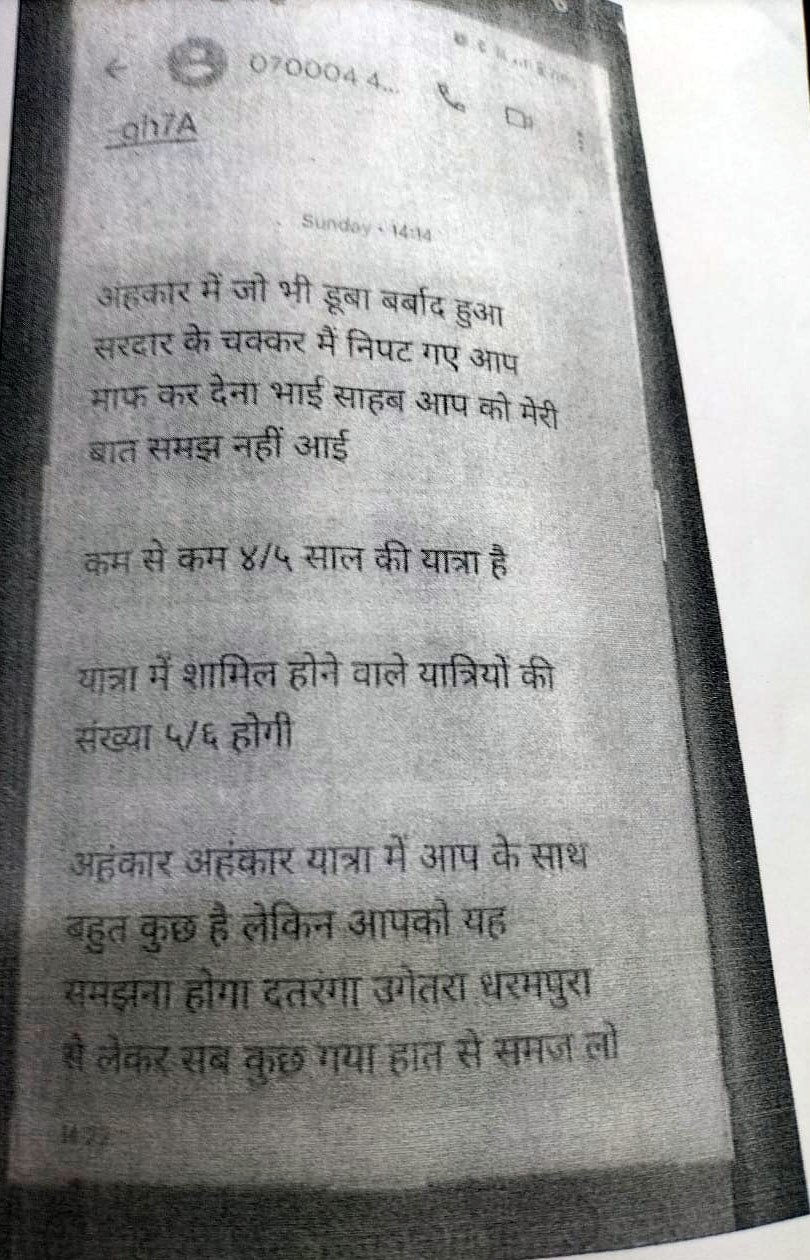 070004 4...
gh7A
Sunday • 14:14
अंहकार में जो भी डूबा बर्बाद हुआ
सरदार के चक्कर मैं निपट गए आप
माफ कर देना भाई साहब आप को मेरी
बात समझ नहीं आई
कम से कम ४/५ साल की यात्रा है
यात्रा में शामिल होने वाले यात्रियों की
संख्या ५/६ होगी
अहंकार अहंकार यात्रा में आप के साथ
बहुत कुछ है लेकिन आपको यह
समझना होगा दतरंगा उगेतरा धरमपुरा
से लेकर सब कुछ गया हात से समज लो